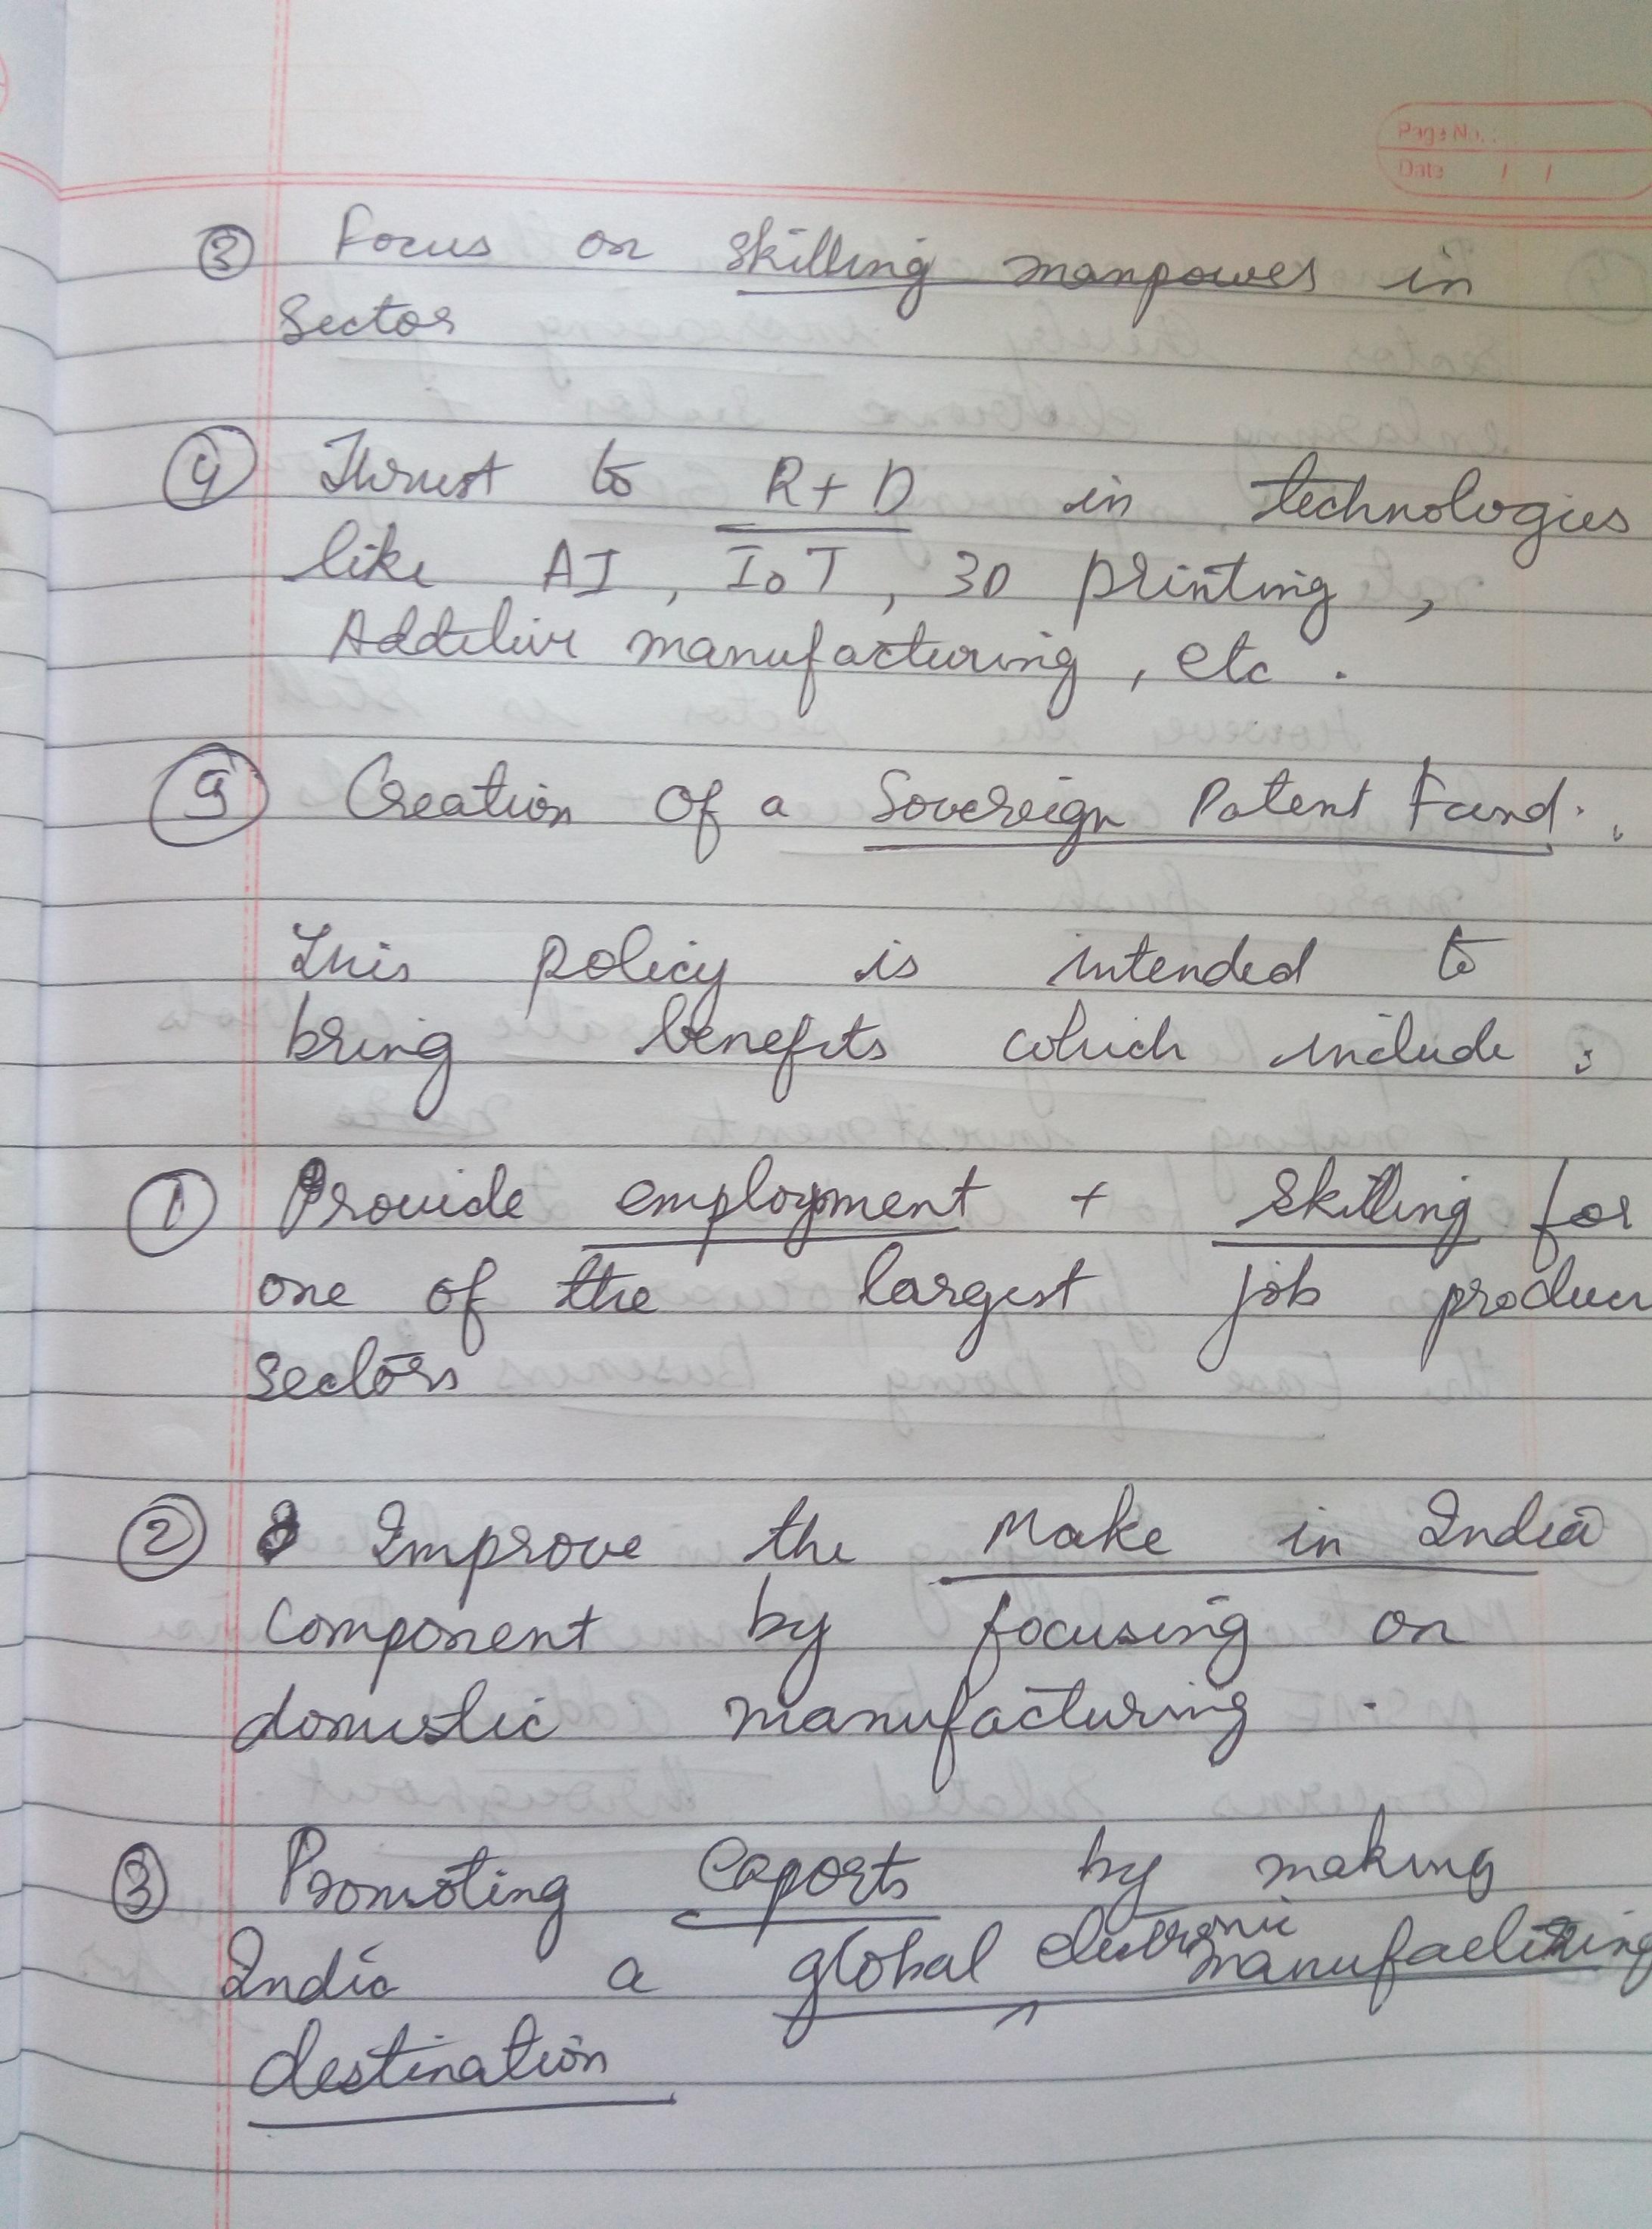 Page No. :
Date / /
③ Focus on skilling manpower in
sector
④ Thrust to R+D in technologies
like AI, IoT, 3D printing,
Additive manufacturing, etc.
⑤ Creation of a Sovereign Patent Fund.
This policy is intended to
bring benefits which include :
① Provide employment + skilling for
one of the largest job
sectors
② Improve the Make in India
component by focusing on
domestic manufacturing.
③ Promoting exports by making
India a global electronic manufacturing
destination